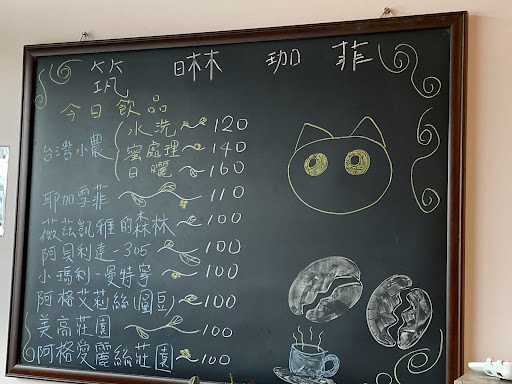 筑 啉 珈 菲
今日飲品
台灣小農 { 水洗 ~ 120
蜜處理 ~ 140
日曬 ~ 160
耶加雪菲 ~ 110
薇茲凱雅的森林 ~ 100
阿貝利達-305 ~ 100
小瑪利-曼特寧 ~ 100
阿格艾莉絲(圓豆) ~ 100
美高莊園 ~ 100
阿格愛麗絲莊園 ~ 100